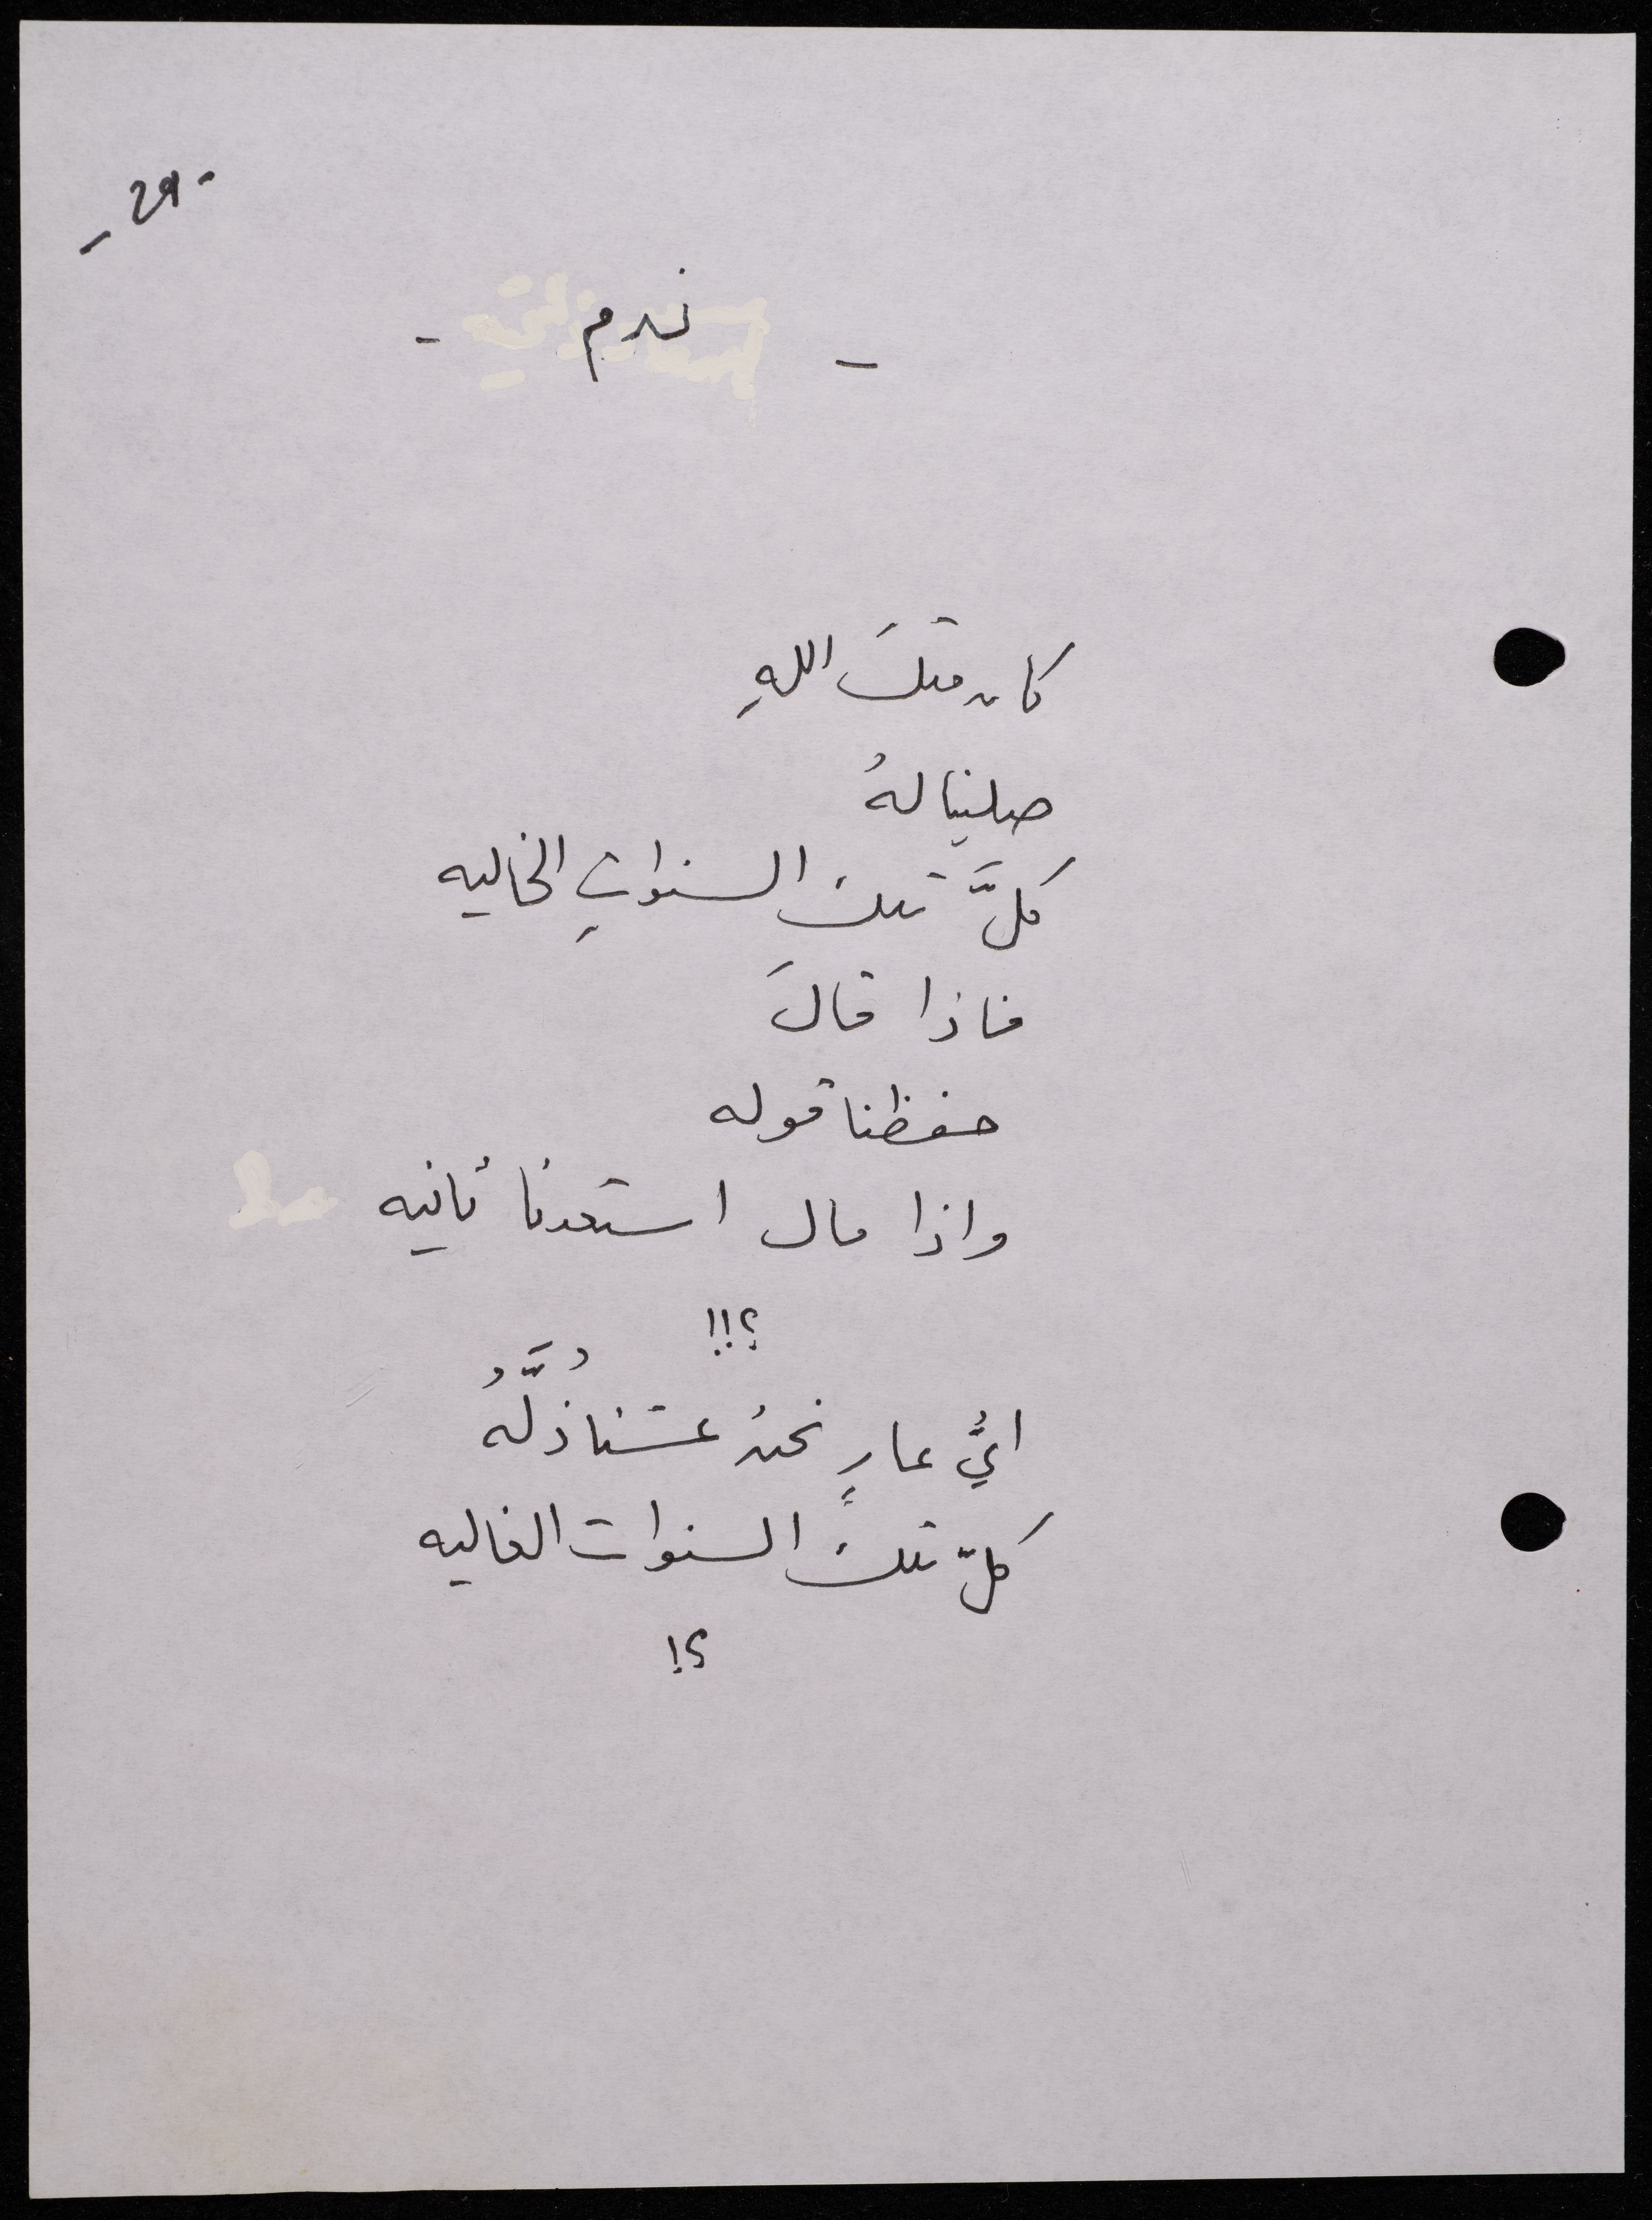 - 29 -
- ندم -
كان مثلَ اللهِ
صلينا لهُ
كلَّ تلك السنواتِ الخاليه
فاذا قالَ
حفظنا قوله
واذا مال استعدنا ثانيه
؟!!
ايُّ عارٍ نحنُ عشنا ذُلَّهُ
كلّ تلك السنوات الغاليه
؟!